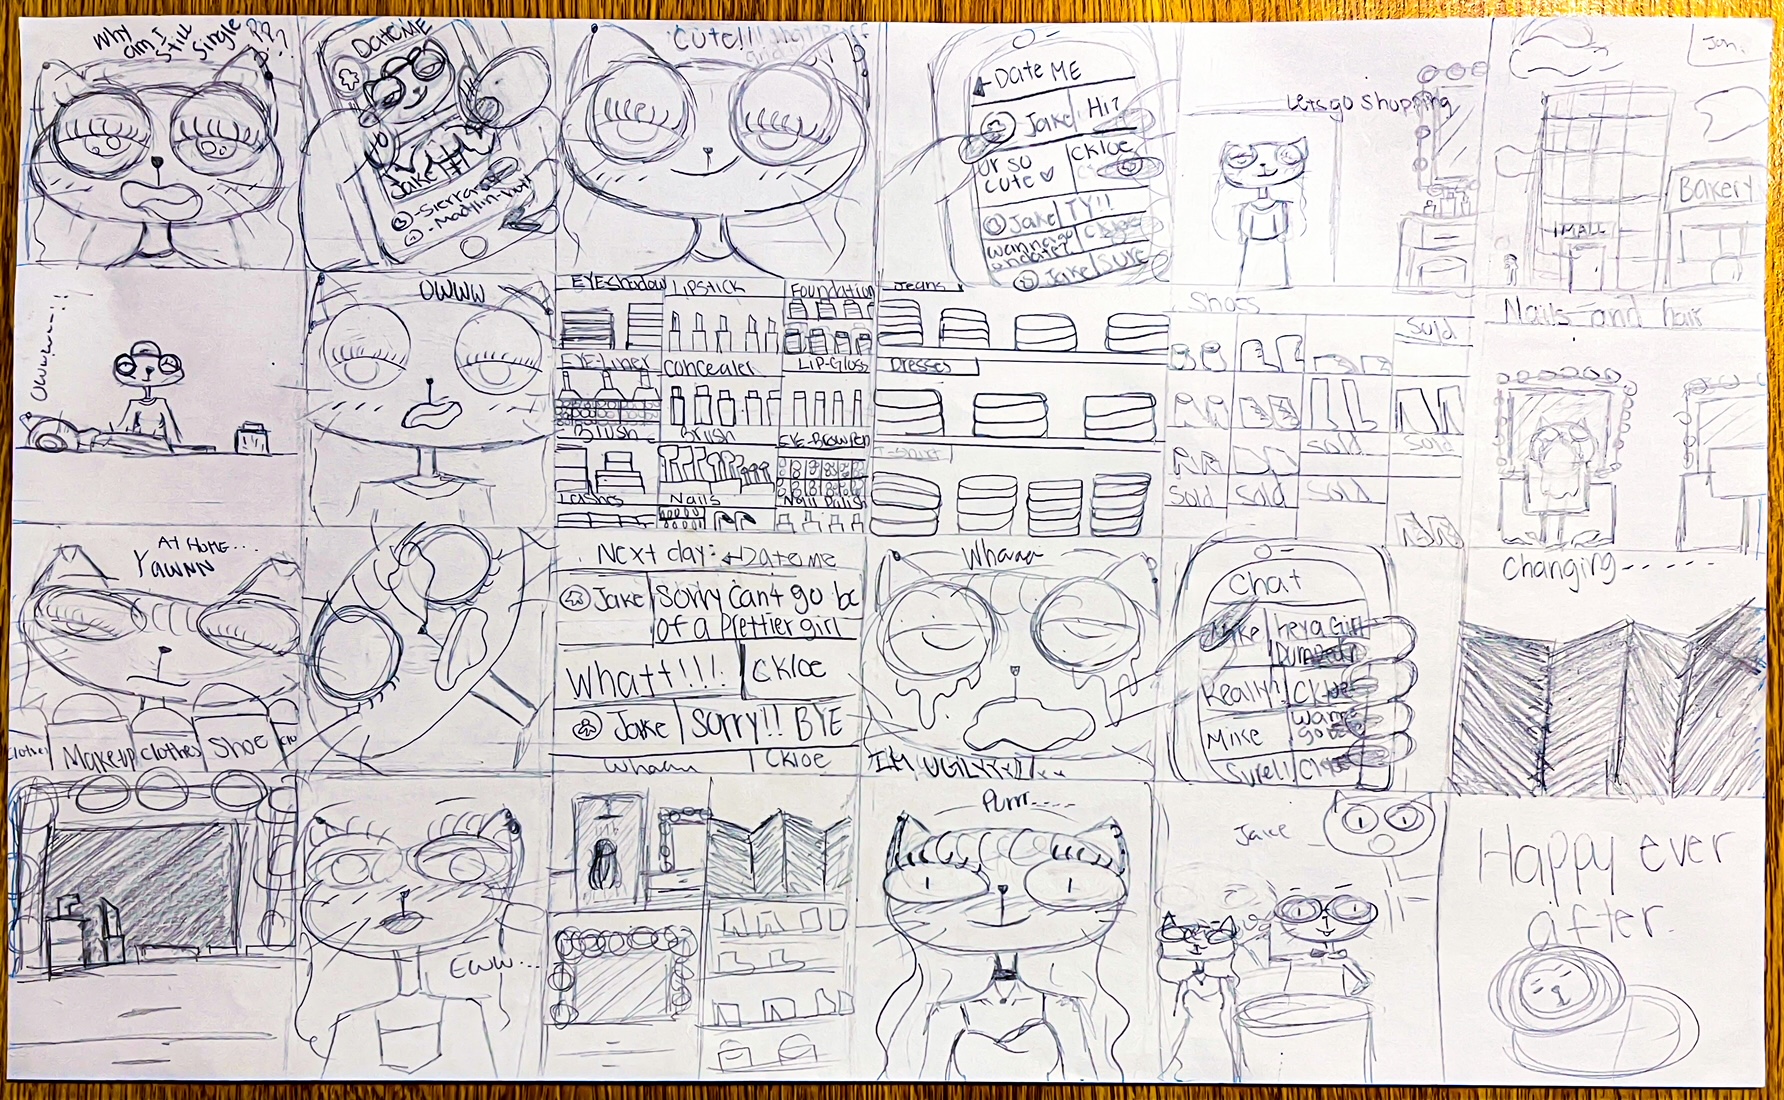 Why
am I
still
single ???
DateME
Jake
-Sierra
-Madylin
CUTE!!!
Date ME
Jake
Hi?
Ur so
cute ♡
CKloe
Jake
TY!!
wanna go
on date?
Jake
Sure
Lets go shopping
MALL
Bakery
Owww...!!
OWWW
EYEshadow
Lipstick
Foundation
EYE-Liner
concealer
Lip-Gloss
Blush
Brush
EYE-BrowPen
Lashes
Nails
Nail Polish
Jeans
Dresses
T-shirt
Shoes
Sold
Sold
Sold
Sold
Sold
Sold
Nails and hair
At Home...
Yawnn
clothes
Makeup
clothes
Shoe
clo
Next day:
Date me
Jake
Sorry can't go bc
of a Prettier girl
Whatt!!!!
CKloe
Jake
Sorry!! BYE
Whaaa
CKloe
Whaaa
I'M UGILYYY!!
Chat
Mike
hey a Girl
Really!
CKloe
Mike
Wanna
go
Sure!!
Changing------
Eww...
Purr....
Jake
Happy ever
after.